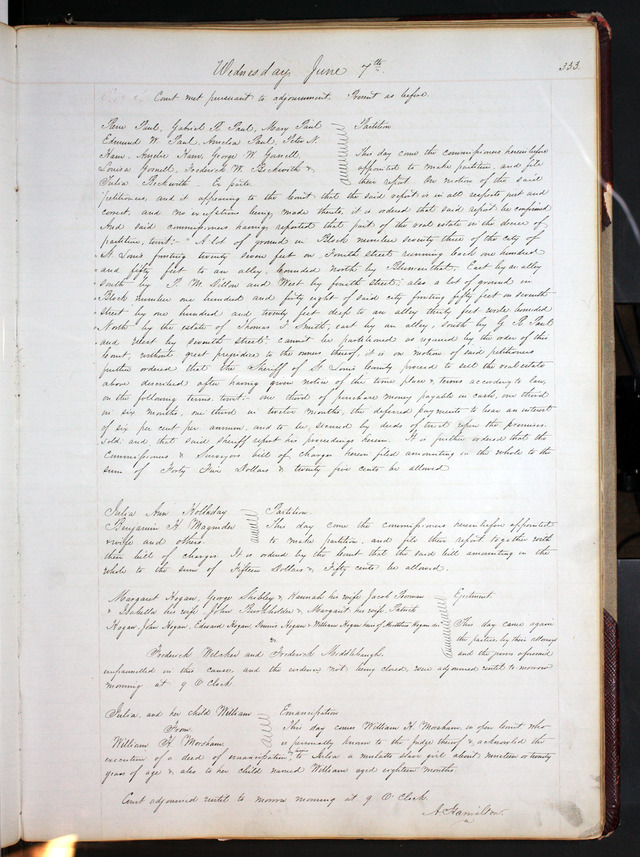 Wednesday June 7th
333.
Court met pursuant to adjournment. Present as before.
Rene Paul, Gabriel R. Paul, Mary Paul
Edmund W. Paul, Amelia Paul, Peter N.
Ham, Amelie Ham, George W. Gorrell
Louisa Gorrell, Frederick W. Beckwith &
Julia Beckwith. Ex parte
Partition
This day come the commissioners hereinbefore
appointed to make partition, and file
their report. On motion of the said
petitioners, and it appearing to the Court that the said report is in all respects just and
correct, and no exceptions being made thereto, it is ordered that said report be confirmed
And said commissioners having reported that part of the real estate in the decree of
partition, towit: "A lot of ground in Block number seventy three of the city of
St. Louis fronting twenty seven feet on Fourth street, running back one hundred
and fifty feet to an alley, bounded north by Blumenthal, East by an alley
South by P. M. Dillon and West by fourth street; also a lot of ground in
Block number one hundred and fifty eight of said city fronting fifty feet on seventh
Street by one hundred and twenty feet deep to an alley thirty feet wide bounded
North by the estate of Thomas J. Smith, east by an alley, South by G. R. Paul
and West by seventh street" cannot be partitioned as required by the order of this
Court, without great prejudice to the owners thereof, it is on motion of said petitioners
further ordered that the Sheriff of St. Louis County proceed to sell the real estate
above described after having given notice of the time place & terms according to law,
on the following terms, towit: one third of purchase money payable in cash, one third
in six months, one third in twelve months, the deferred payments to bear an interest
of six per cent per annum, and to be secured by deeds of trust upon the premises
sold and that said sheriff report his proceedings herein. It is further ordered that the
Commissioners & Surveyors bill of charges herein filed amounting in the whole to the
sum of Forty Four Dollars & twenty five cents be allowed
Julia Ann Holladay
Benjamin H. Magruder
& wife and others.
Partition
This day come the commissioners hereinbefore appointed
to make partition, and file their report together with
their bill of charges. It is ordered by the Court that the said bill amounting in the
whole to the sum of Fifteen Dollars & Fifty cents be allowed.
Margaret Hogan, George Shibley & Hannah his wife, Jacob Bowman
& Isabella his wife, John & Margaret his wife, Patrick
Hogan, John Hogan, Edward Hogan, Dennis Hogan & William Hogan heirs of Hogan dec.
vs
Frederick and Frederick Middlebaugh
Ejectment
This day came again
the parties by their attorneys
and the jurors aforesaid
empannelled in this cause, and the evidence not being closed, were adjourned until to morrow
morning at 9 O'Clock.
Julia, and her child William
From
William H. Marsham
Emancipation
This day comes William H. Marsham in open Court who
is personally known to the Judge thereof & acknowledged the
execution of a deed of emancipation to Julia a mulatto slave girl about nineteen or twenty
years of age & also to her child named William aged eighteen months.
Court adjourned until to morrow morning at 9 O'Clock.
A Hamilton.